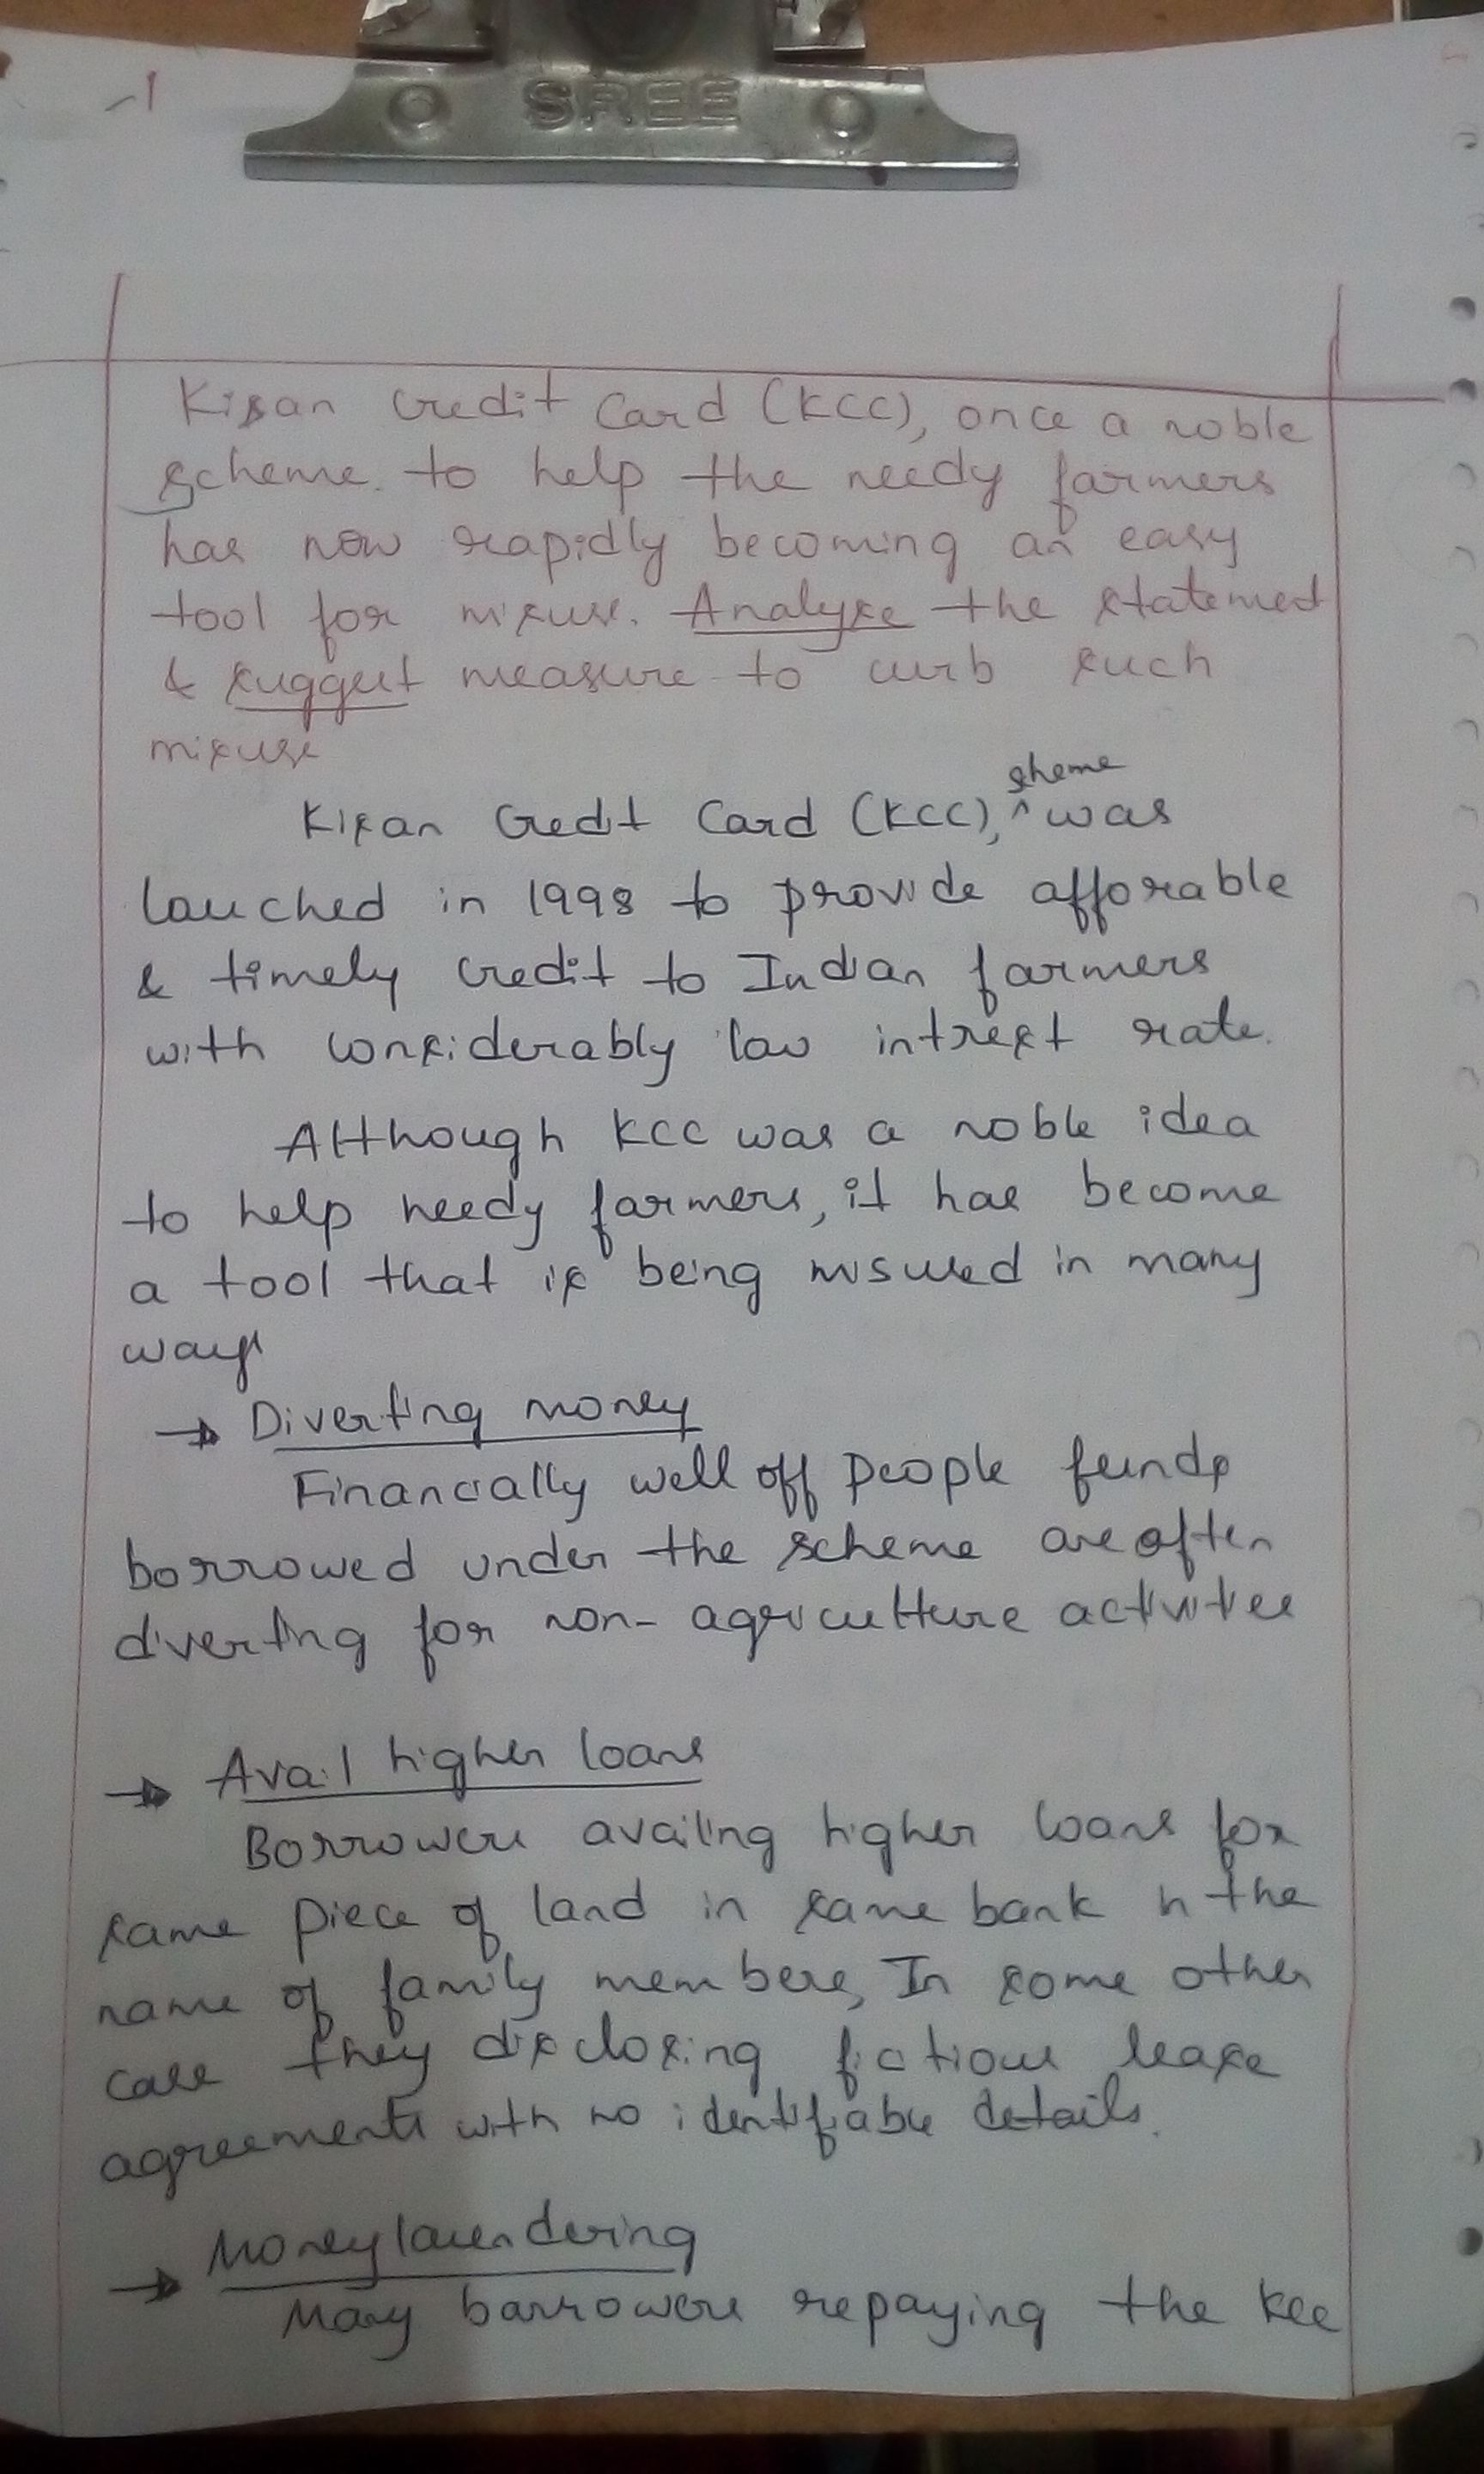 SREE
-1
Kisan Credit Card (KCC), once a noble
scheme. to help the needy farmers
has now rapidly becoming an easy
tool for misuse. Analyse the statement
& suggest measure to curb such
misuse
sheme
Kisan Credit Card (KCC), ^ was
lauched in 1998 to provide afforable
& timely credit to Indian farmers
with considerably low intrest rate.
Although KCC was a noble idea
to help needy farmers, it has become
a tool that is being misused in many
ways
→ Diverting money
Financially well off people funds
borrowed under the scheme are often
diverting for non-agriculture activities
→ Avail higher loans
Borrowers availing higher loans for
same piece of land in same bank in the
name of family members, In some other
case they disclosing fictious lease
agreements with no identifiable details.
→ Money laundering
Many barrowers repaying the kcc